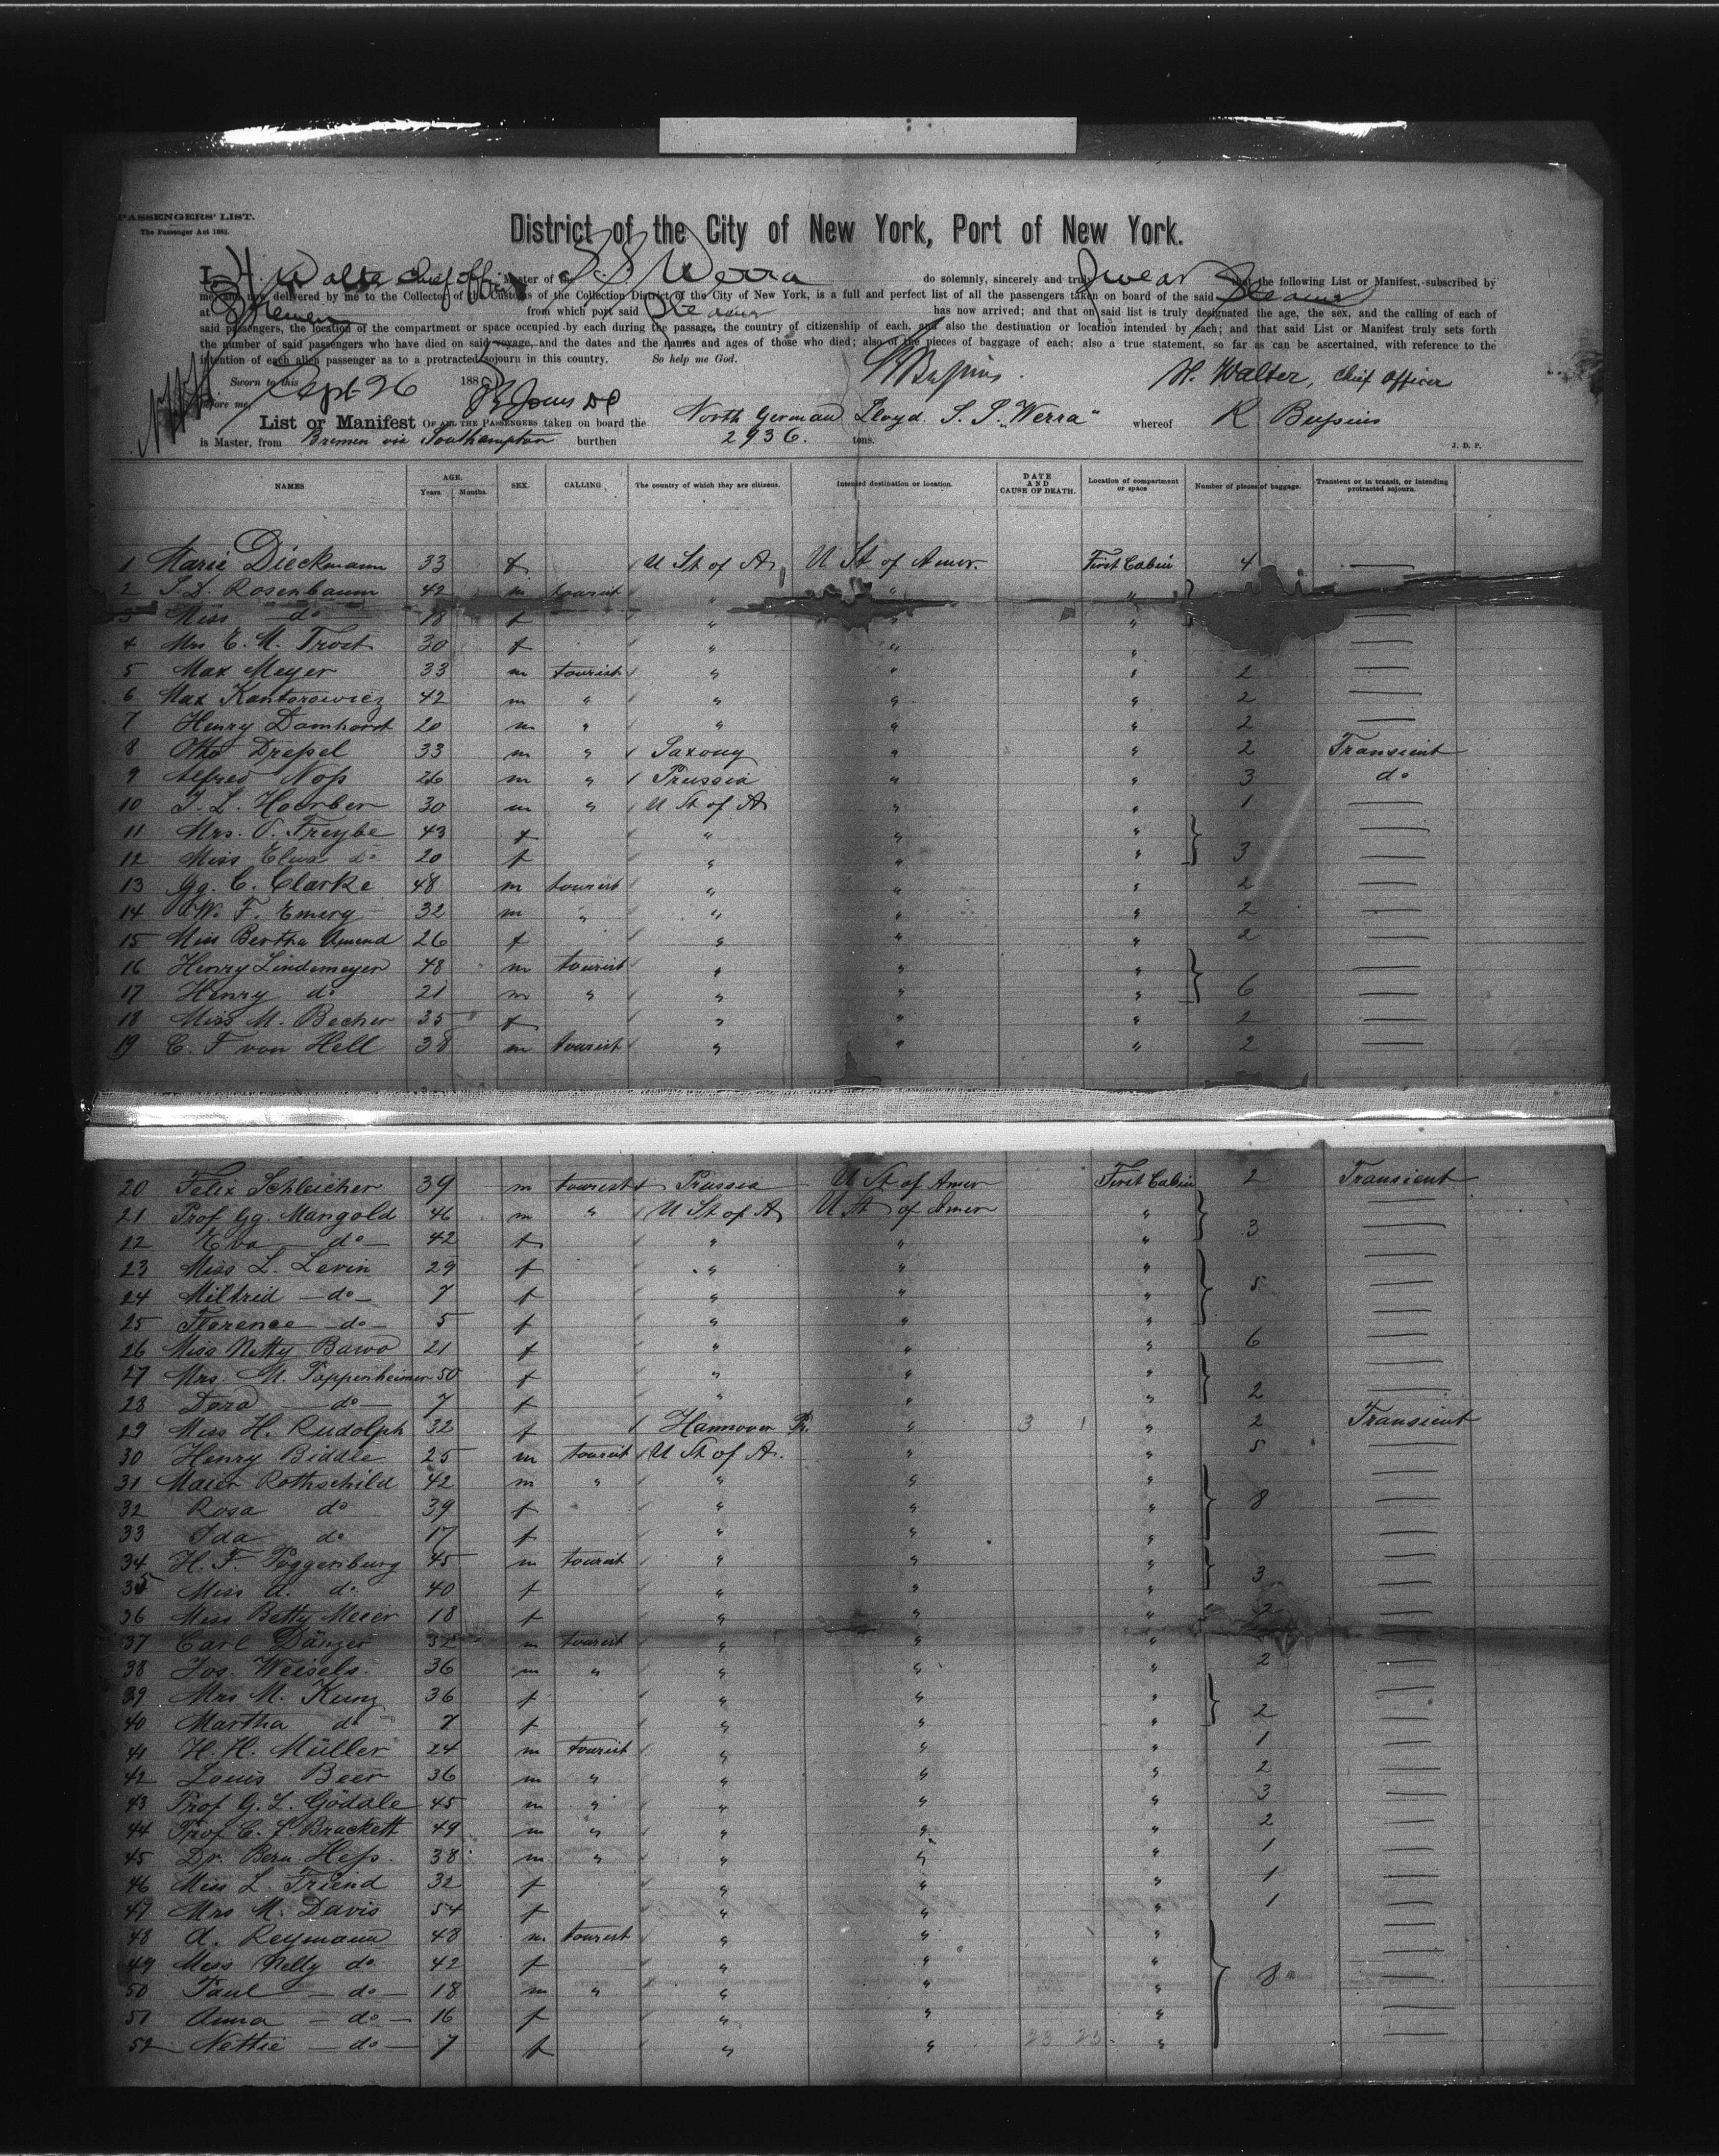 PASSENGERS' LIST.
The Passenger Act 1882.
District of the City of New York, Port of New York.
I, H. Walter Chief Officer Master of the S. S. Werra do solemnly, sincerely and truly swear that the following List or Manifest, subscribed by
me and now delivered by me to the Collector of the Customs of the Collection District of the City of New York, is a full and perfect list of all the passengers taken on board of the said Steamer
at Bremen from which port said Steamer has now arrived; and that on said list is truly designated the age, the sex, and the calling of each of
said passengers, the location of the compartment or space occupied by each during the passage, the country of citizenship of each, and also the destination or location intended by each; and that said List or Manifest truly sets forth
the number of said passengers who have died on said voyage, and the dates and the names and ages of those who died; also of the pieces of baggage of each; also a true statement, so far as can be ascertained, with reference to the
intention of each alien passenger as to a protracted sojourn in this country. So help me God.
Sworn to this Sept 26 188 H. Walter, Chief Officer
before me
List or Manifest OF ALL THE PASSENGERS taken on board the North German Lloyd S. S. "Werra" whereof R Bussius
is Master, from Bremen via Southampton burthen 2936. tons.
J. D. P.
NAMES AGE. Years Months SEX. CALLING The country of which they are citizens. Intended destination or location. DATE AND CAUSE OF DEATH. Location of compartment or space Number of pieces of baggage. Transient or in transit, or intending protracted sojourn.
1 Marie Dieckmann 33 f U St of A U St of Amer. First Cabin 4 —
2 S. L. Rosenbaum 42 m tourist " " "
3 Miss do 18 f " " " —
4 Mrs E. M. Trost 30 f " " " —
5 Max Meyer 33 m tourist " " " 2 —
6 Max Kantorowicz 42 m " " " " 2 —
7 Henry Domhorst 20 m " " " " 2 —
8 Otto Dressel 33 m " Saxony " " 2 Transient
9 Alfred Noss 26 m " Prussia " " 3 do
10 J. L. Hoerber 30 m " U St of A " " 1 —
11 Mrs. O. Freybe 43 f " " " —
12 Miss Elsa do 20 f " " " 3 —
13 Gg. C. Clarke 48 m tourist " " " 2 —
14 W. F. Emery 32 m " " " " 2 —
15 Miss Bertha Amend 26 f " " " 2 —
16 Henry Lindemeyer 48 m tourist " " " —
17 Henry do 21 m " " " " 6 —
18 Miss M. Becher 35 f " " " 2 —
19 C. F von Hell 38 m tourist " " " 2 —
20 Felix Schleicher 39 m tourist Prussia U St of Amer First Cabin 2 Transient
21 Prof Gg. Mangold 46 m " U St of A U St of Amer " 3 —
22 Eva — do — 42 f " " " —
23 Miss L. Levin 29 f " " " —
24 Mildrid — do — 7 f " " " 5 —
25 Florence — do — 5 f " " " —
26 Miss Netty Bawo 21 f " " " 6 —
27 Mrs. M. Pappenheimer 50 f " " " —
28 Dora — do — 7 f " " " 2 —
29 Miss H. Rudolph 32 f Hannover Pr. " 3 1 " 2 Transient
30 Henry Biddle 25 m tourist U St of A. " " 5 —
31 Maier Rothschild 42 m " " " " —
32 Rosa do 39 f " " " 8 —
33 Ida do 17 f " " " —
34 H. F. Poggenburg 45 m tourist " " " —
35 Miss A. do 40 f " " " 3 —
36 Miss Betty Meier 18 f " " " 2 —
37 Carl Dänzer 32 m tourist " " " —
38 Jos. Weisels. 36 m " " " " 2 —
39 Mrs M. Kunz 36 f " " " —
40 Martha do 7 f " " " 2 —
41 H. H. Müller 24 m tourist " " " 1 —
42 Louis Beer 36 m " " " " 2 —
43 Prof G. L. Gödale 45 m " " " " 3 —
44 Prof C. F. Brackett 49 m " " " " 2 —
45 Dr. Bern. Hess. 38 m " " " " 1 —
46 Miss L. Friend 32 f " " " 1 —
47 Mrs M. Davis 54 f " " " 1 —
48 A. Reymann 48 m tourist " " " —
49 Miss Nelly do 42 f " " " 8 —
50 Paul — do — 18 m " " " " —
51 Anna — do — 16 f " " " —
52 Nettie — do — 7 f " " 23 25 " —